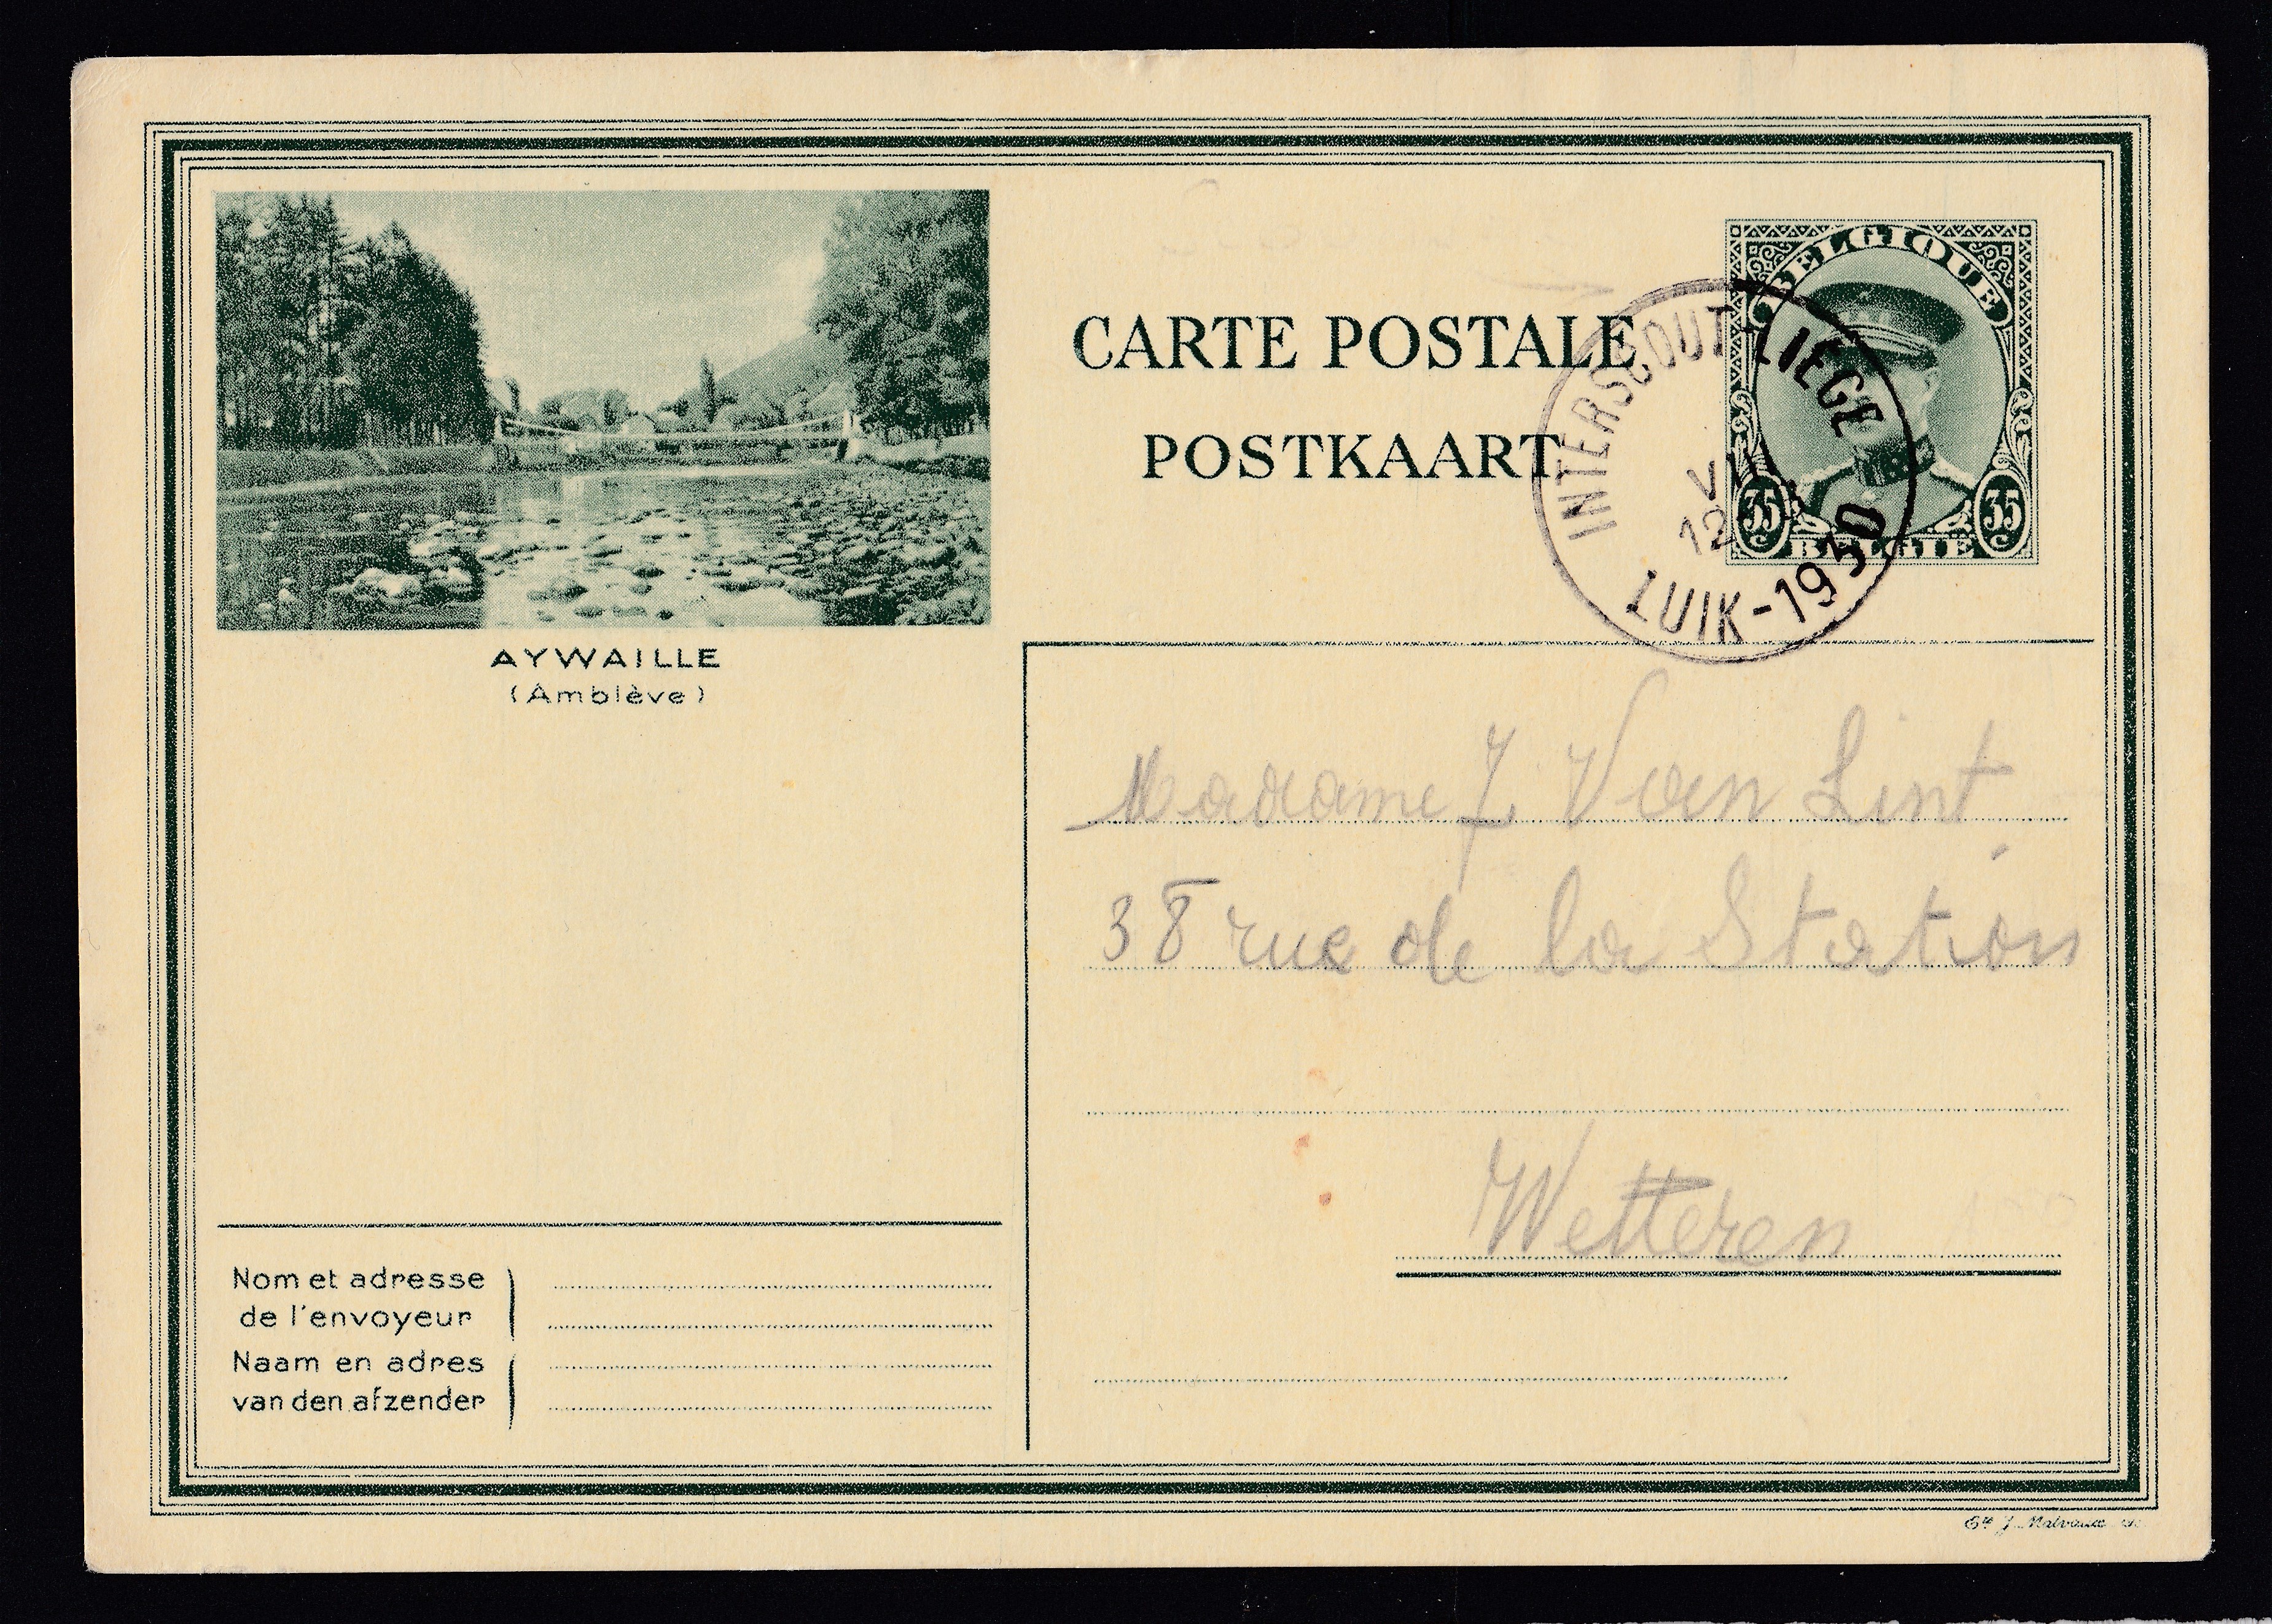 AYWAILLE
(Amblève)
Nom et adresse
de l'envoyeur
Naam en adres
van den afzender
CARTE POSTALE
POSTKAART
BELGIQUE
35 c
35 c
BELGIE
INTERSCOUT - LIEGE
12
LUIK - 1930
Madame J. Van Lint
38 rue de la Station
Wetteren
Ets J. Malvaux